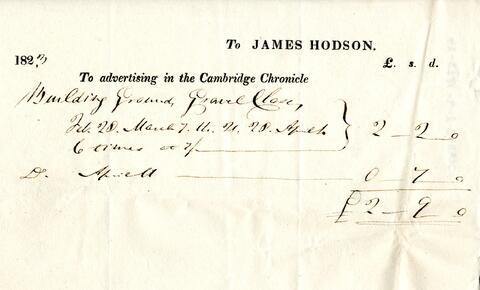 To JAMES HODSON.
1823 £. s. d.
To advertising in the Cambridge Chronicle
Building Ground, Gravel Close,
Feb. 28. March 7. 14. 21. 28. April 4
6 times at 7/ 2 – 2 0
Do. April 11 0 7 0
£2 – 9 0